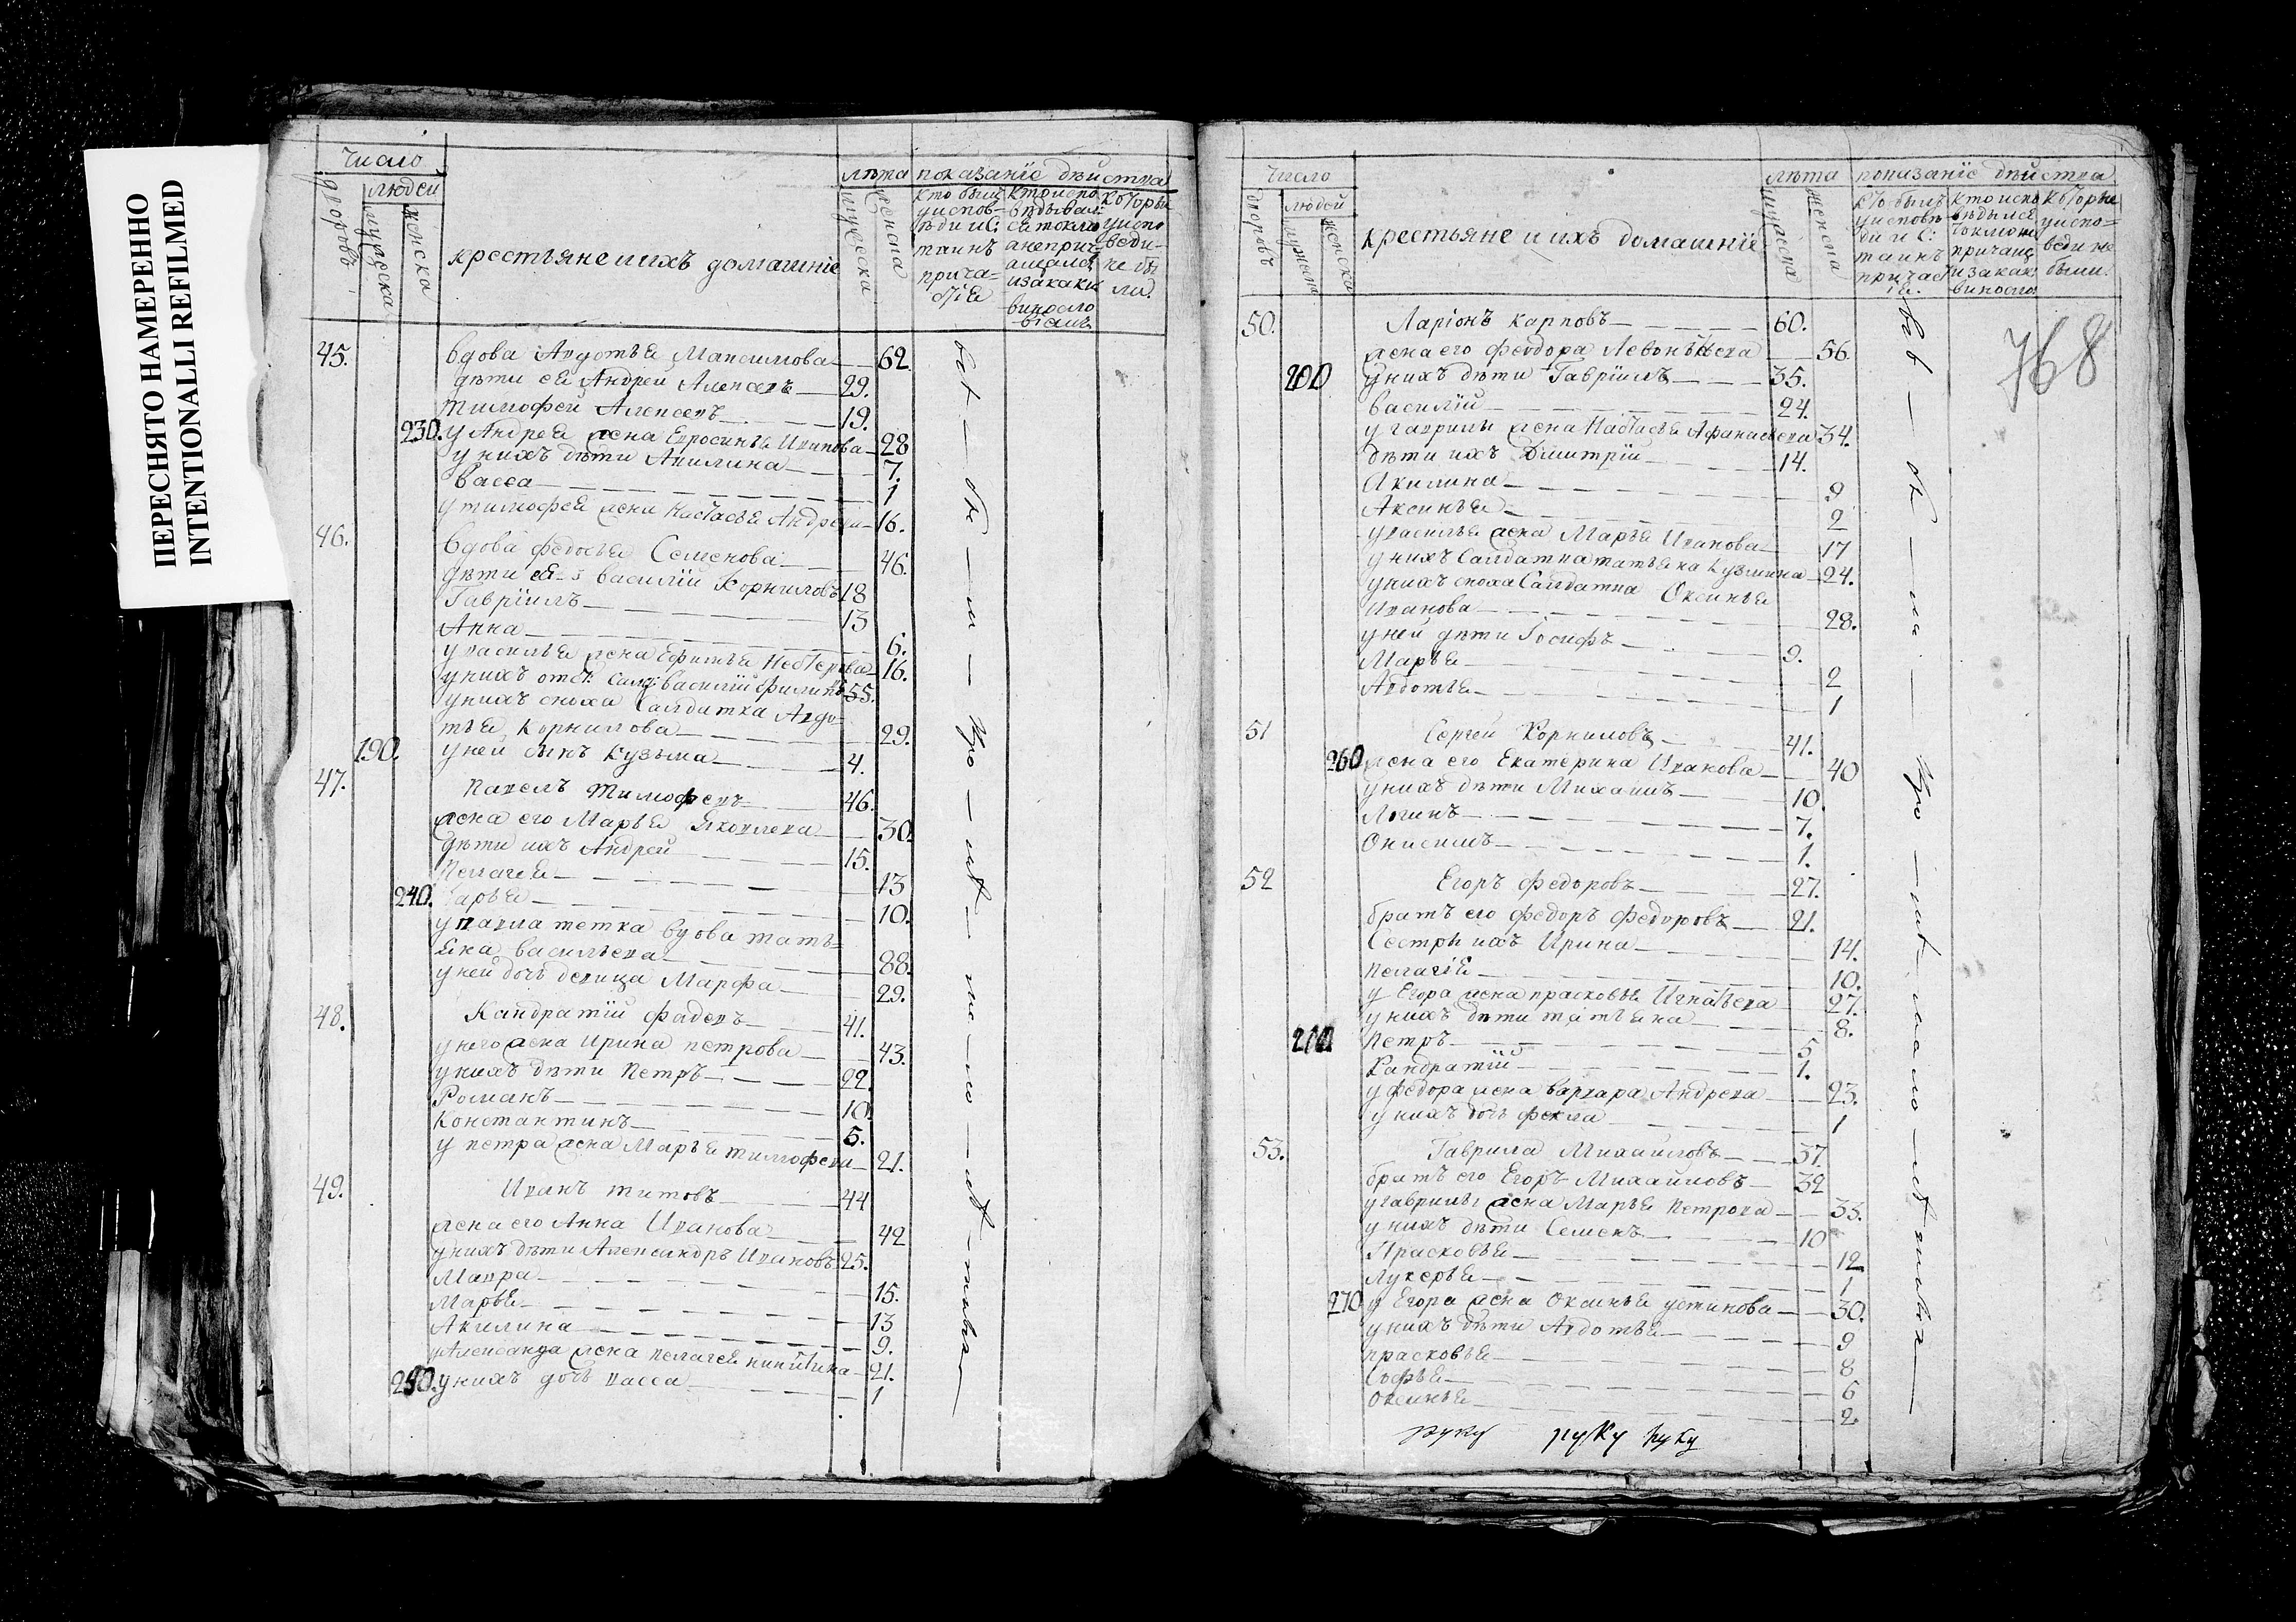 ПЕРЕСНЯТО НАМЕРЕННО
INTENTIONALLI REFILMED
число
людей
дворовъ
мужеска
женска
крестьяне и ихъ домашніе
лѣта
мужеска
женска
показаніе дѣиства
кто былъ
у испов-
ѣди и С:
таинъ
прича-
стіе
кто испо
вѣдывал
ся токмо
а неприч-
ащалсѧ
и закаки
винословіемъ
которы
у испо
веди
не бы
ли.
45. вдова Авдотьѧ Максимова 62
дѣти еѧ Андреи Алексевъ 29.
Тимофей Алексевъ 19.
230. у Андреѧ жена Евросиньѧ Иванова 28
у нихъ дѣти Акилина 7.
васса 1
у тимофеѧ жена настасьѧ Андрева 16.
46. вдова федосьѧ Семенова 46.
дѣти еѧ василій Корниловъ 18
Гавріилъ 13
Анна 6.
у васильѧ жена Ефимьѧ Нестерова 16.
у нихъ отст: Салд: василий Филиповъ 55.
у нихъ сноха Салдатка Авдо-
тьѧ Корнилова 29.
190. у ней сынъ Кузьма 4.
47. Павелъ Тимофевъ 46.
жена его Марьѧ Яковлева 30.
дѣти ихъ Андреи 15.
Пелагеѧ 13
240. Дарьѧ 10.
у павла тетка вдова тать-
ѧна васильева 88.
у ней дочь девица Марфа 29.
48. Кандратій фадевъ 41.
у него жена Ирина петрова 43.
у нихъ дѣти Петръ 22.
Романъ 10.
Константинъ 5.
у петра жена Марьѧ тимофева 21.
49. Иванъ титовъ 44
жена его Анна Иванова 42
у нихъ дѣти Александръ Ивановъ 25.
Мавра 15.
Марьѧ 13
Акилина 9.
у Александра жена пелагеѧ никитина 21.
250. у нихъ дочь васса 1
число
людей
дворовъ
мужеска
женска
крестьяне и ихъ домашніе
лѣта
мужеска
женска
показаніе дѣиства
кто былъ
у исповѣ
ди и С:
таинъ
причаст
іѧ.
кто испо
вѣдылсѧ
токмо не
причащ
и закак:
винослов
которые
у испо-
веди не
были.
768
50. Ларіонъ Карповъ 60.
жена его феодора Левонтьева 56.
200 у нихъ дѣти Гавріилъ 35.
василій 24.
у гаврилы жена Настасьѧ Афанасьева 34.
дѣти ихъ Дмитрій 14.
Акилина 9
Аксиньѧ 2
у васильѧ жена Марьѧ Иванова 17
у нихъ Салдатка татьѧна Кузмина 24.
у нихъ сноха Салдатка Оксиньѧ
Иванова 28.
у ней дѣти Іосифъ 9.
Марьѧ 2
Авдотьѧ 1
51 Сергеи Корниловъ 41.
260 жена его Екатерина Иванова 40
у нихъ дѣти Михаилъ 10.
Логинъ 7.
Онисимъ 1.
52 Егоръ федоровъ 27.
братъ его федоръ федоровъ 21.
Сестры ихъ Ирина 14.
пелагіѧ 10.
у Егора жена прасковьѧ Игнатьева 27.
у нихъ дѣти татьѧна 8.
210 Петръ 5
Кандратій 1.
у федора жена варвара Андрева 23.
у нихъ дочь фекла 1
53. Гаврила Михаиловъ 37.
братъ его Егоръ Михаиловъ 32
у гаврилы жена Марьѧ Петрова 35.
у нихъ дѣти Семенъ 10
Прасковьѧ 12
Лукерьѧ 1
270 у Егора жена Оксиньѧ устинова 30.
у нихъ дѣти Авдотьѧ 9
прасковьѧ 8
Софьѧ 6
Оксиньѧ 2.
руку руку руку